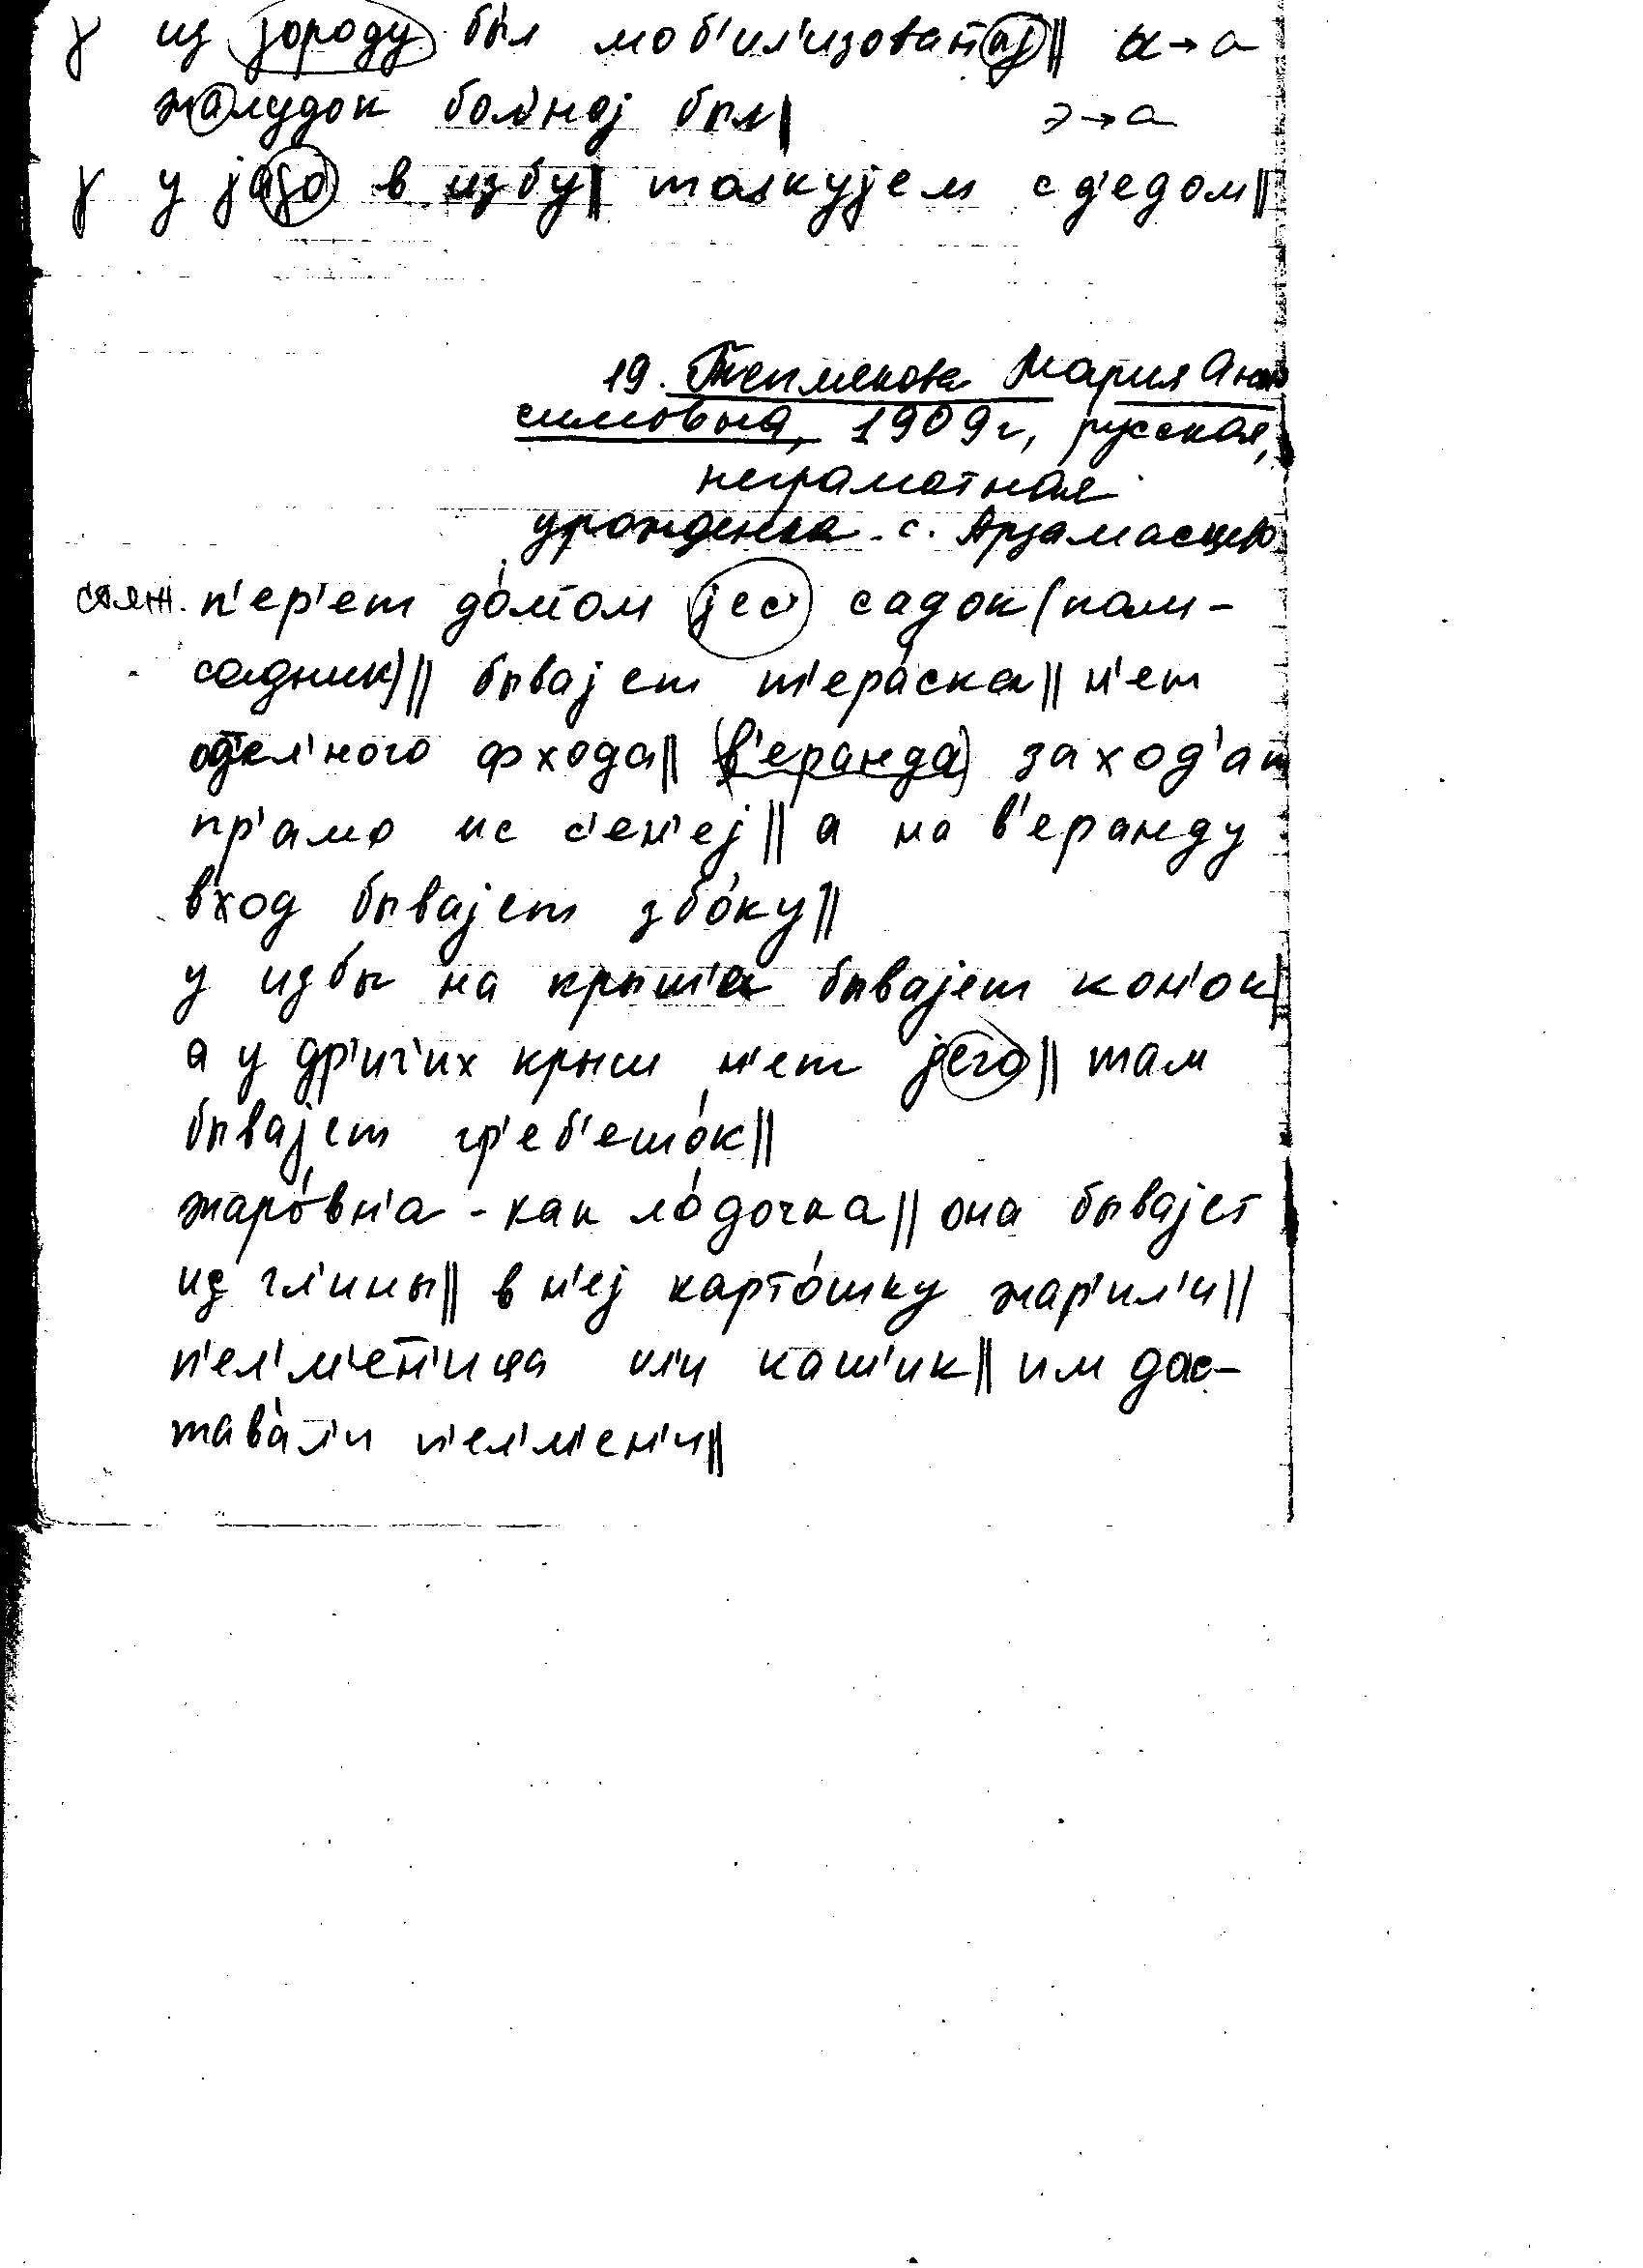 γ из γороду был моб'ил'изованај || а → а
жалудок бол'ној был| э → а
γ у јаγо в избу|| толкујем с д'едом||
19. Теплякова Мария Ани-
симовна, 1909г, русская,
неграмотная
урожденка с. Арзамасцево
стяж. п'ер'ет до́мом јес' садок (пали-
садник) || бывајет т'ера́ска || н'ет
од'ел'ного фхода || (в'еранда) заход'ат
пр'амо ис с'ен'еј || а на в'еранду
вход бывајет збо́ку ||
у избы на крыш'а бывајет кон'ок|
а у др'иг'их крыш н'ет јего || там
бывајет гр'еб'ешо́к ||
жаро́вн'а - как ло́дочка || она бывајет
из гл'ины || в н'еј карто́шку жар'ил'и ||
п'ел'м'ен'ица или каш'ик || им дос-
тава́л'и п'ел'м'ен'и ||